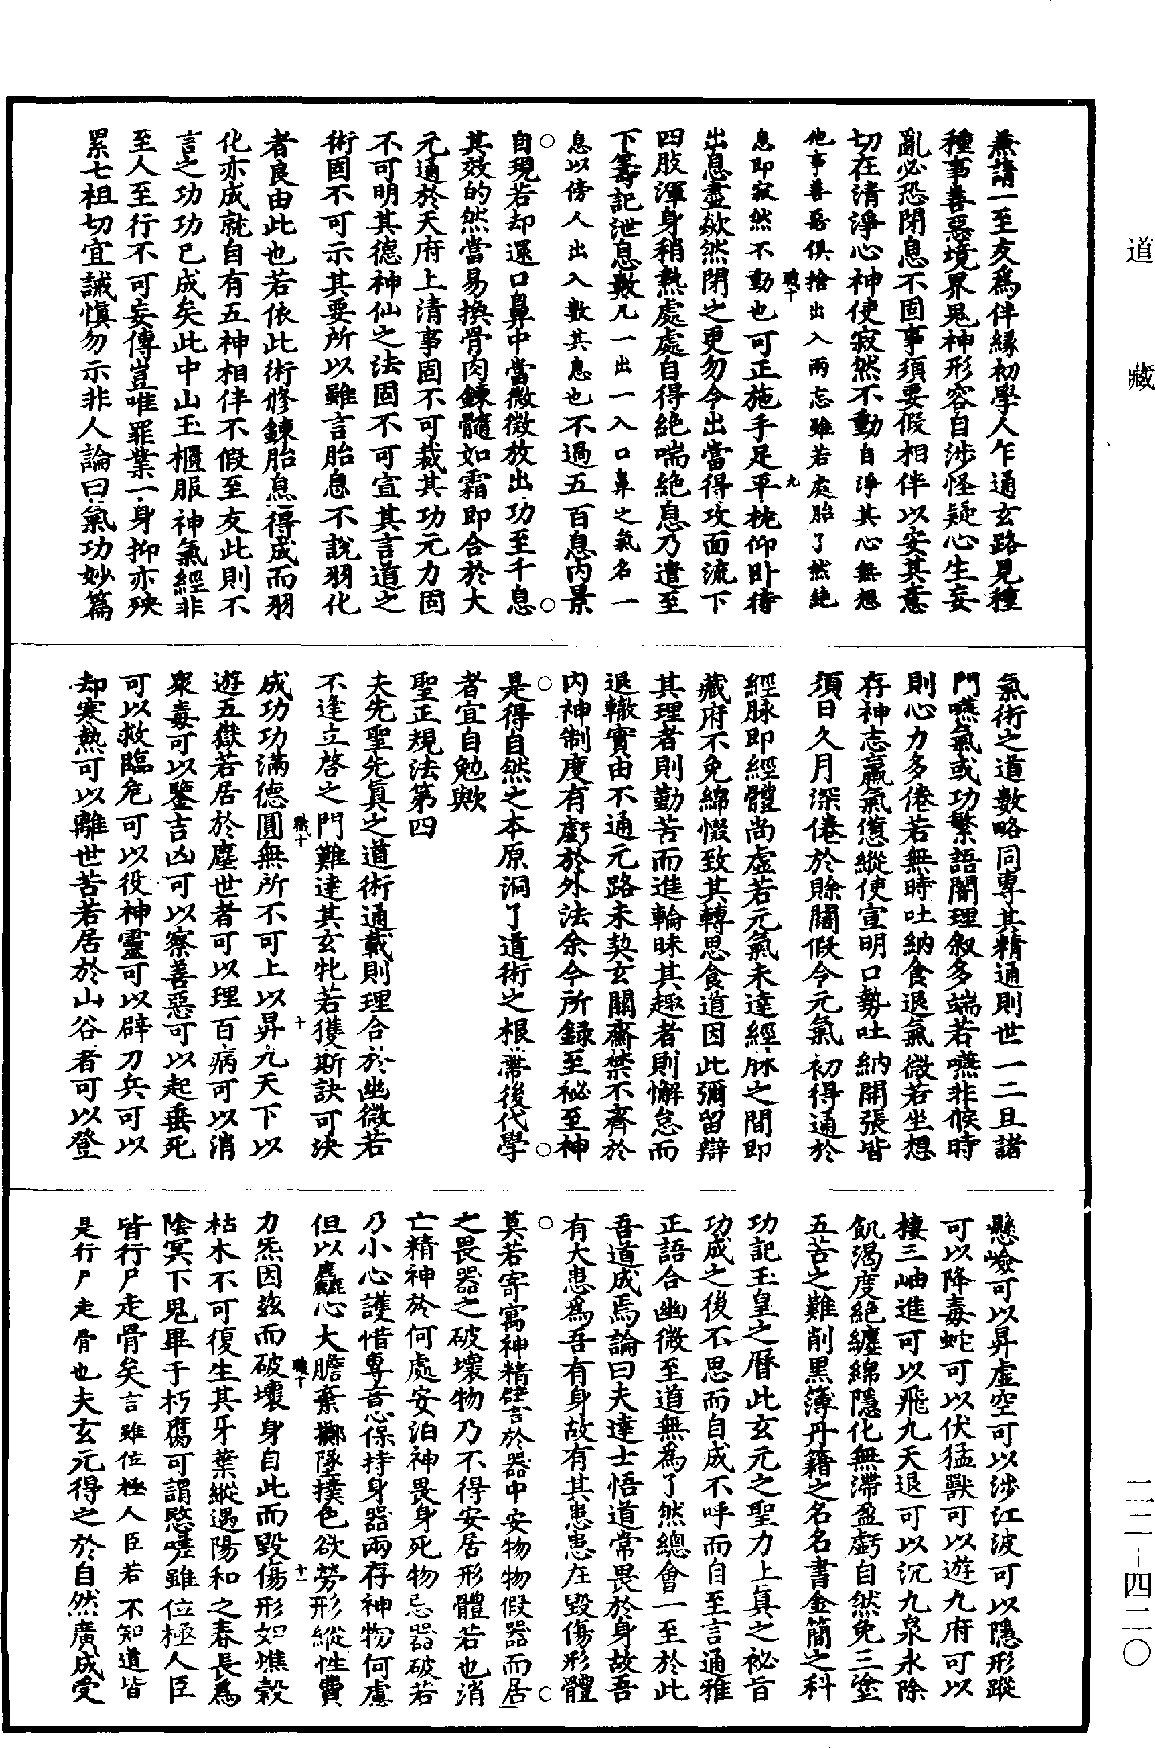 道藏
二二-四二〇
兼請一至友爲伴緣初學人乍通玄路見種
種事善惡境界鬼神形容自涉怪疑心生妄
亂必恐閉息不固事須要假相伴以安其意
切在清淨心神使寂然不動自淨其心無想
他事善惡俱捨出入兩忘雖若處胎了然絶
息即寂然不動也可正施手足平枕仰卧待
出息盡欻然閉之更勿令出當得攻面流下
四肢渾身稍熱處處自得絶喘絶息乃遣至
下籌記泄息數凡一出一入口鼻之氣名一
息以傍人出入數其息也不過五百息内景
自現若却還口鼻中當微微放出功至千息
其效的然當易換骨肉鍊髓如霜即合於大
元通於天府上清事固不可裁其功元力固
不可明其德神仙之法固不可宣其言道之
術固不可示其要所以雖言胎息不說羽化
者良由此也若依此術修鍊胎息得成而羽
化亦成就自有五神相伴不假至友此則不
言之功功已成矣此中山玉櫃服神氣經非
至人至行不可妄傳豈唯罪業一身抑亦殃
累七祖切宜誡慎勿示非人論曰氣功妙篇
氣術之道數略同專其精通則世一二且諸
門嚥氣或功繁語闇理叙多端若嚥非候時
則心力多倦若無時吐納食退氣微若坐想
存神志羸氣憊縱使宣明口勢吐納開張皆
須日久月深倦於賒闊假令元氣初得通於
經脉即經體尚虚若元氣未達經脉之間即
藏府不免綿惙致其轉思食道因此彌留辯
其理者則勤苦而進輪昧其趣者則懈怠而
退轍實由不通元路未契玄關齋禁不齊於
内神制度有虧於外法余今所錄至秘至神
是得自然之本原洞了道術之根蔕後代學
者宜自勉歟
聖正規法第四
夫先聖先眞之道術通載則理合於幽微若
不逢立啓之門難達其玄牝若獲斯訣可決
成功功滿德圓無所不可上以昇九天下以
遊五嶽若居於塵世者可以理百病可以消
衆毒可以鑒吉凶可以察善惡可以起垂死
可以救臨危可以役神靈可以辟刀兵可以
却寒熱可以離世苦若居於山谷者可以登
懸嶮可以昇虚空可以涉江波可以隱形蹤
可以降毒蛇可以伏猛獸可以遊九府可以
棲三岫進可以飛九天退可以沉九泉永除
飢渴度絶纏綿隱化無滯盈虧自然免三塗
五苦之難削黑簿丹籍之名名書金簡之科
功記玉皇之曆此玄元之聖力上真之祕旨
功成之後不思而自成不呼而自至言通雅
正語合幽微至道無爲了然總會一至於此
吾道成焉論曰夫達士悟道常畏於身故吾
有大患爲吾有身故有其患患在毀傷形體
莫若寄寓神精譬於器中安物物假器而居
之畏器之破壞物乃不得安居形體若也消
亡精神於何處安泊神畏身死物忌器破若
乃小心護惜專意保持身器兩存神物何慮
但以麤心大膽棄擲墜撲色欲勞形縱性費
力炁因茲而破壞身自此而毀傷形如燋榖
枯木不可復生其牙葉縱遇陽和之春長爲
陰冥下鬼畢于朽腐可謂愍嗟雖位極人臣
皆行尸走骨矣言雖位極人臣若不知道皆
是行尸走骨也夫玄元得之於自然廣成受